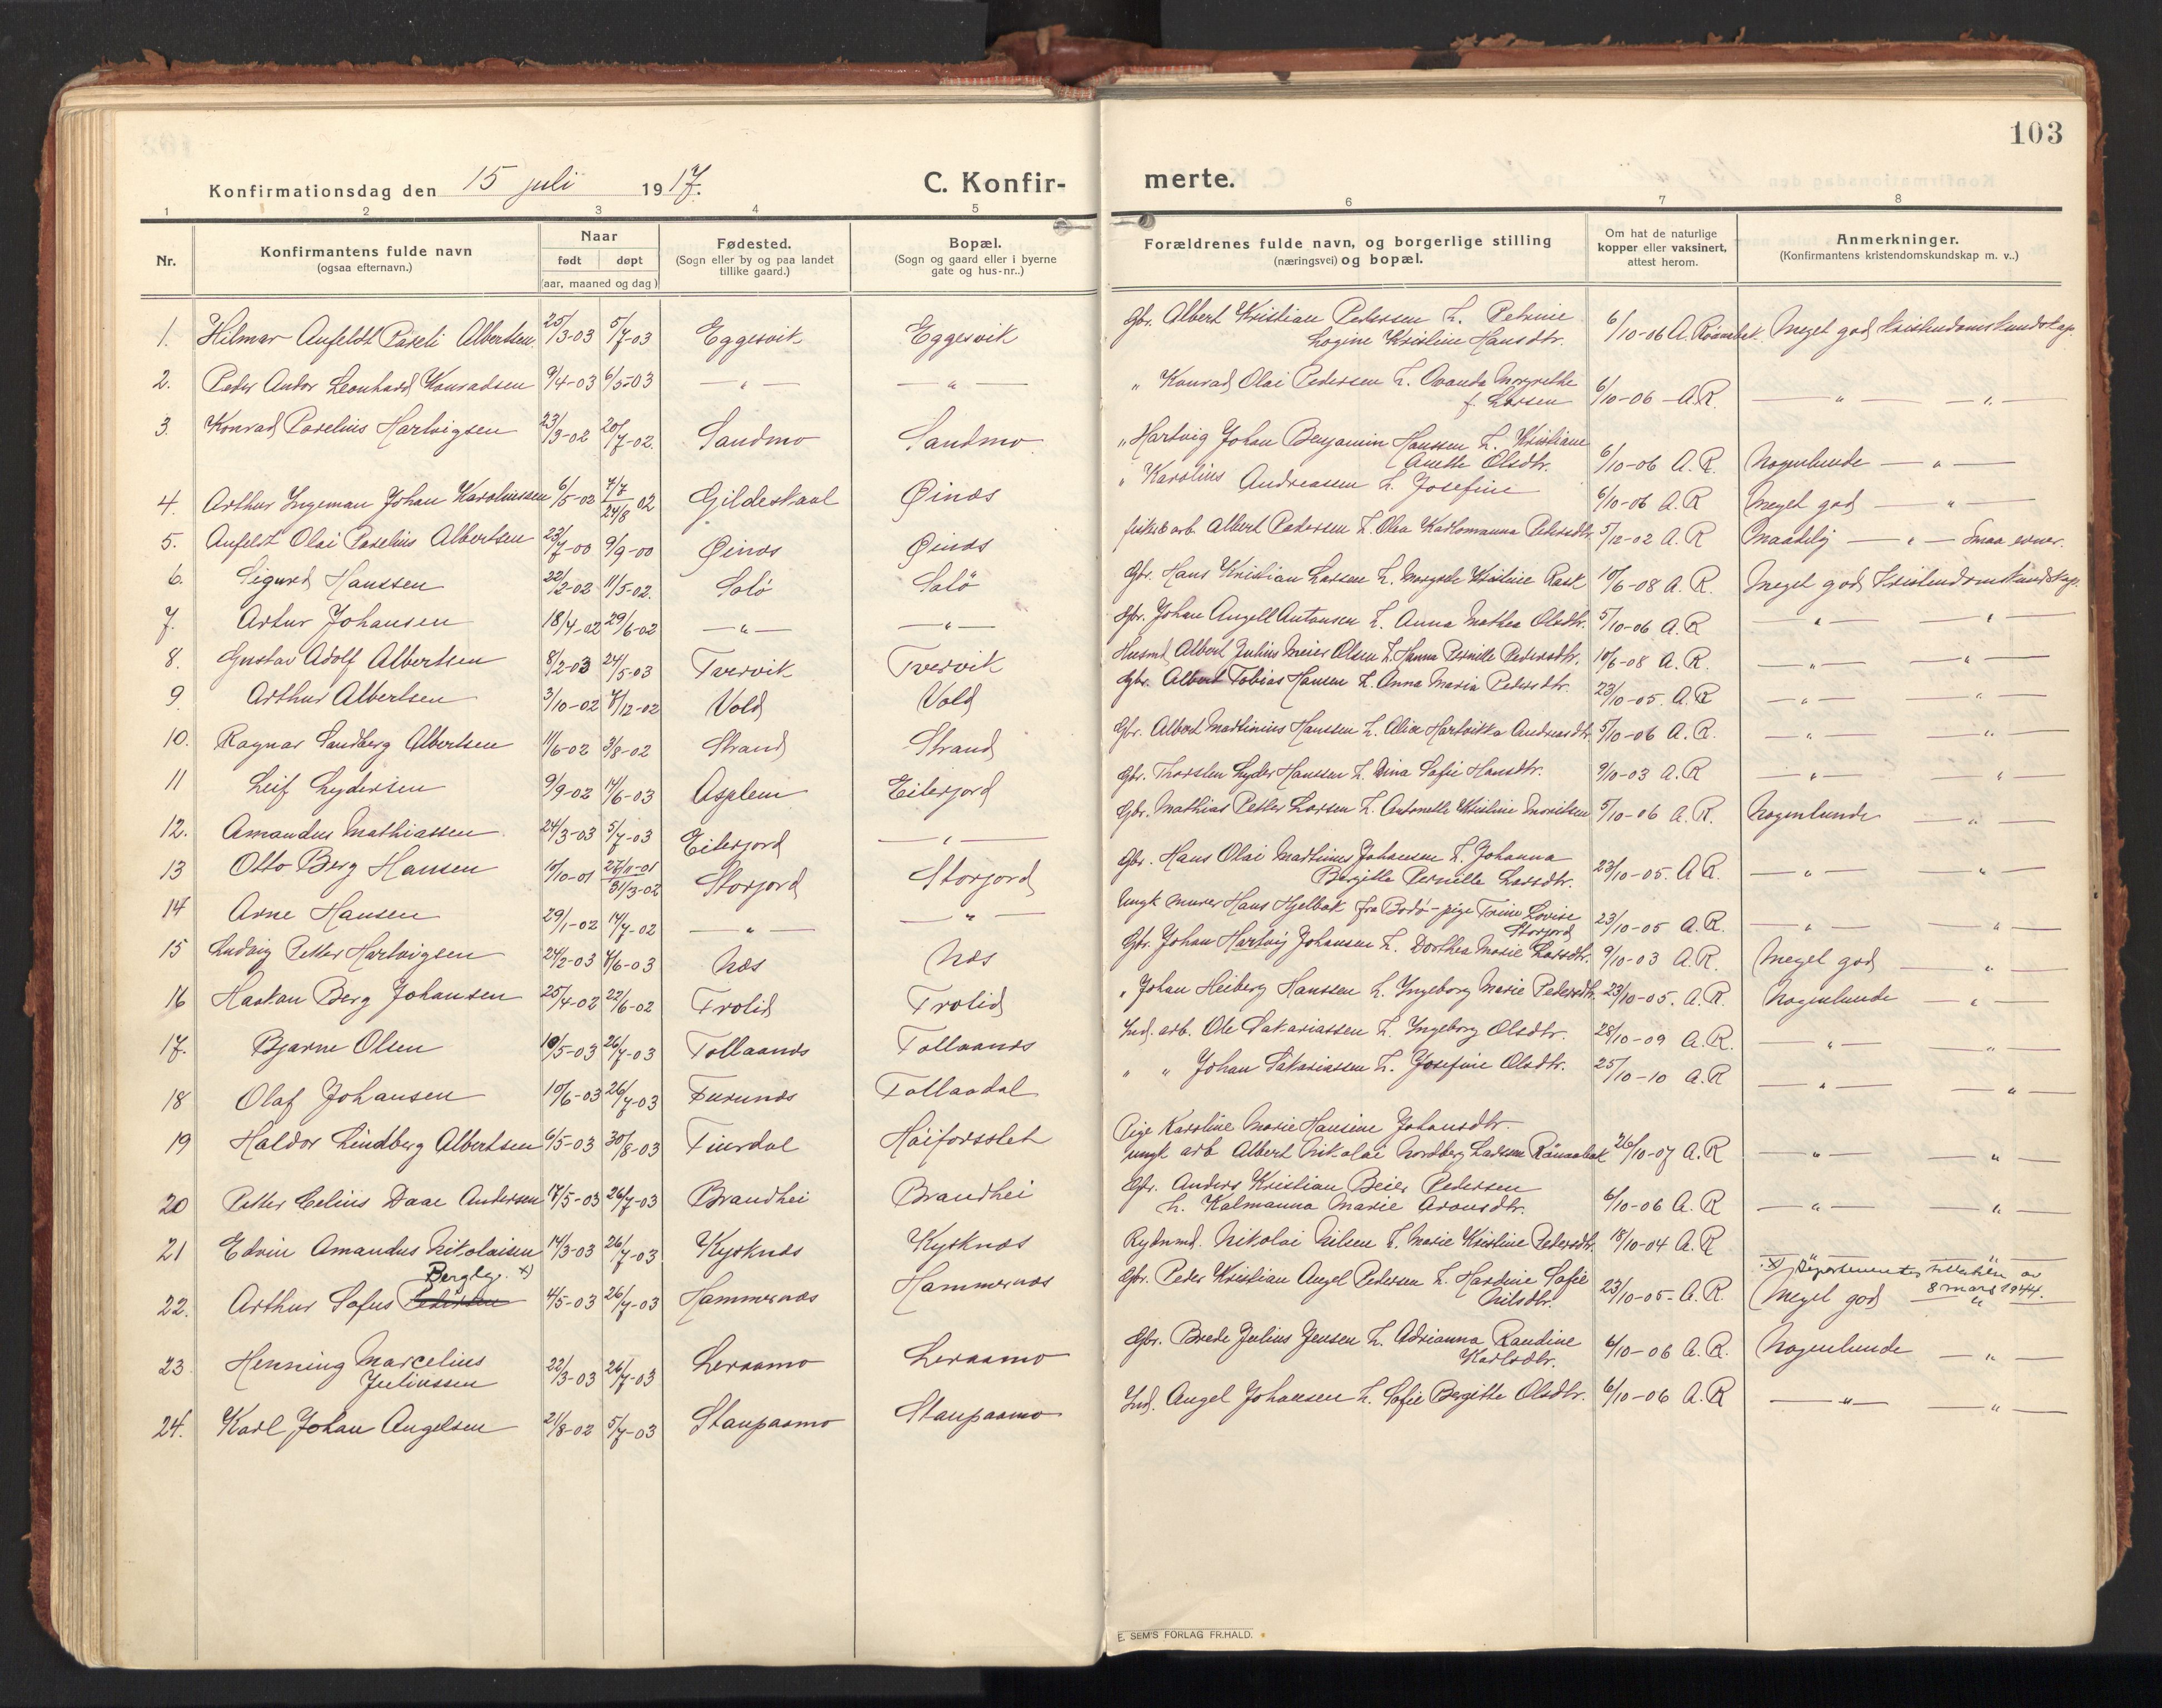 103
Konfirmationsdag den 15 juli 1917. C. Konfir- merte.
1 2 3 4 5 6 7 8
Nr. Konfirmantens fulde navn (ogsaa efternavn.) Naar født døpt (aar, maaned og dag) Fødested. (Sogn eller by og paa landet tillike gaard.) Bopæl. (Sogn og gaard eller i byerne gate og hus-nr..) Forældrenes fulde navn, og borgerlige stilling (næringsvei) og bopæl. Om hat de naturlige kopper eller vaksinert, attest herom. Anmerkninger. (Konfirmantens kristendomskundskap m. v..)
1. Hilmar Anfeldt Pareli Albertsen 25/3-03 5/7-03 Eggesvik Eggesvik Gbr. Albert Kristian Pedersen h. Petrine 6/10-06 A. Rönnebek. Meget god kristendomskundskap.
Logine Kristine Hansdtr.
2. Peder Andor Leonhard Konradsen 9/4-03 6/5-03 — " — — " — " Konrad Olai Pedersen h. Ovanda Margrethe
f. Larsen 6/10-06 A.R. — " — — " —
3. Konrad Parelius Hartvigsen 23/3-02 20/7-02. Sandmo Sandmo. " Hartvig Johan Benjamin Hanssen h. Kristiane
Anette Olsdtr. 6/10-06 A. R. Nogenlunde — " —
4. Arthur Ingeman Johan Karoliussen 6/5-02 7/7 24/8 02 Gildeskaal Øinæs " Karolius Andreassen h. Josefine 6/10-06 A. R Meget god — " —
5. Anfeldt Olai Parelius Albertsen 23/7-00 9/9-00 Øinæs Øinæs Albert Pedersen h. Olea Karlomanna Pedersdtr. 5/12-02 A. R Maadelig — " — Smaa evner.
6. Sigurd Hanssen 22/2-02 11/5-02. Solö Solö Gbr. Hans Kristian Larsen h. Margrete Kristine Rask 10/6-08 A. R. Meget god Kristendomskundskap.
7. Artur Johansen 18/4-02 29/6-02 — " — — " — Gbr. Johan Angell Antonsen h. Anna Mathea Olsdtr. 5/10-06 A. R — " — — " —
8. Gustav Adolf Albertsen 8/2-03 24/5-03 Tverrvik Tverrvik Husmd. Albert Julius Meier Olsen h. Hanna Pernille Pedersdtr. 10/6-08 A. R. — " — — " —
9 Arthur Albertsen 3/10-02 7/12-02 Vold Vold Gbr. Albert Tobias Hansen h. Anna Maria Pedersdtr. 23/10-05. A. R — " — — " —
10. Ragnar Sandberg Albertsen 11/6-02 3/8-02 Strand Strand Gbr. Albert Martinius Hanssen h. Oline Hartvikka Andreasdtr. 5/10-06 A. R. — " — — " —
11 Leif Lydersen 9/9-02 14/6-03 Asplem Eiterjord Gbr. Thorsten Lyder Hanssen h. Dina Sofie Hansdtr. 9/10-03 A. R — " — — " —
12. Amandus Mathiassen 24/3-03 5/7-03 Eiterjord — " — Gbr. Mathias Petter Larsen h. Antonette Kristine Moritsen 5/10-06 A. R. Nogenlunde — " —
13 Otto Berg Hansen 10/10-01 27/11-01 31/3-02 Storjord Storjord Gbr. Hans Olai Martinus Johansen h. Johanna
Bergitte Pernelle Larsdtr. 23/10-05. A. R. — " — — " —
14 Arne Hansen 29/1-02 14/7-02 — " — — " — Ungk murer Hans Hjelbak fra Bodö - pige Trine Lovise
Storjord 23/10-05 A. R. — " — — " —
15 Ludvig Petter Hartvigsen 24/2-03 7/6-03 Næs Næs Gbr. Johan Hartvig Johansen h. Dorthea Marie Larsdtr. 9/10-03 A. R. Meget god — " —
16 Haakan Berg Johansen 25/4-02 22/6-02 Trolid Trolid " Johan Heiberg Hanssen h. Ingeborg Marie Pedersdtr. 23/10-05. A. R. Nogenlunde — " —
17. Bjarne Olsen 10/5-03 26/7-03 Tollaanæs Tollaanæs Ind. arb. Ole Sakariassen h. Ingeborg Olsdtr. 28/10-09 A. R. — " — — " —
18 Olaf Johansen 10/6-03 26/7-03 Furunæs Tollaadal " " Johan Sakariassen h. Josefine Olsdtr. 25/10-10 A. R — " — — " —
19 Haldor Lindberg Albertsen 6/5-03 30/8-03 Høiforsslet Pige Karoline Marie Hansine Johansdtr.
ungk arb Albert Nikolai Nordberg Larsen 26/10-07 A. R — " — — " —
20 Petter Celius Daae Andersen 17/5-03 26/7-03 Brandhei Brandhei Gbr. Anders Kristian Beier Pedersen
h. Kalmanna Marie Aronsdtr. 6/10-06 A. R — " — — " —
21 Edvin Amandus Nikolaisen 14/3-03 26/7-03 Kysknæs Kysknæs Rydnmd. Nikolai Nilsen h. Marie Kristine Pedersdtr. 18/10-04 A. R — " — — " —
Bergly. x) x) Departementets tillatelse av
8 mars 1944.
22. Arthur Sofus Pedersen 4/5-03 26/7-03 Hammernæs Hammernæs Gbr. Peder Kristian Angel Pedersen h. Hardine Sofie
Nilsdtr. 23/10-05. A. R. Meget god "
23 Henning Marcelius
Juliussen 22/3-03 26/7-03 Leraamo Leraamo Gbr. Brede Julius Jensen h. Adrianna Randine
Karlsdtr. 6/10-06 A. R. Nogenlunde — " —
24. Karl Johan Angelsen 21/8-02 5/7-03 Staupaamo Staupaamo Ind. Angel Johansen h. Sofie Bergitte Olsdtr. 6/10-06 A. R — " — — " —
E. SEM'S FORLAG FR.HALD.